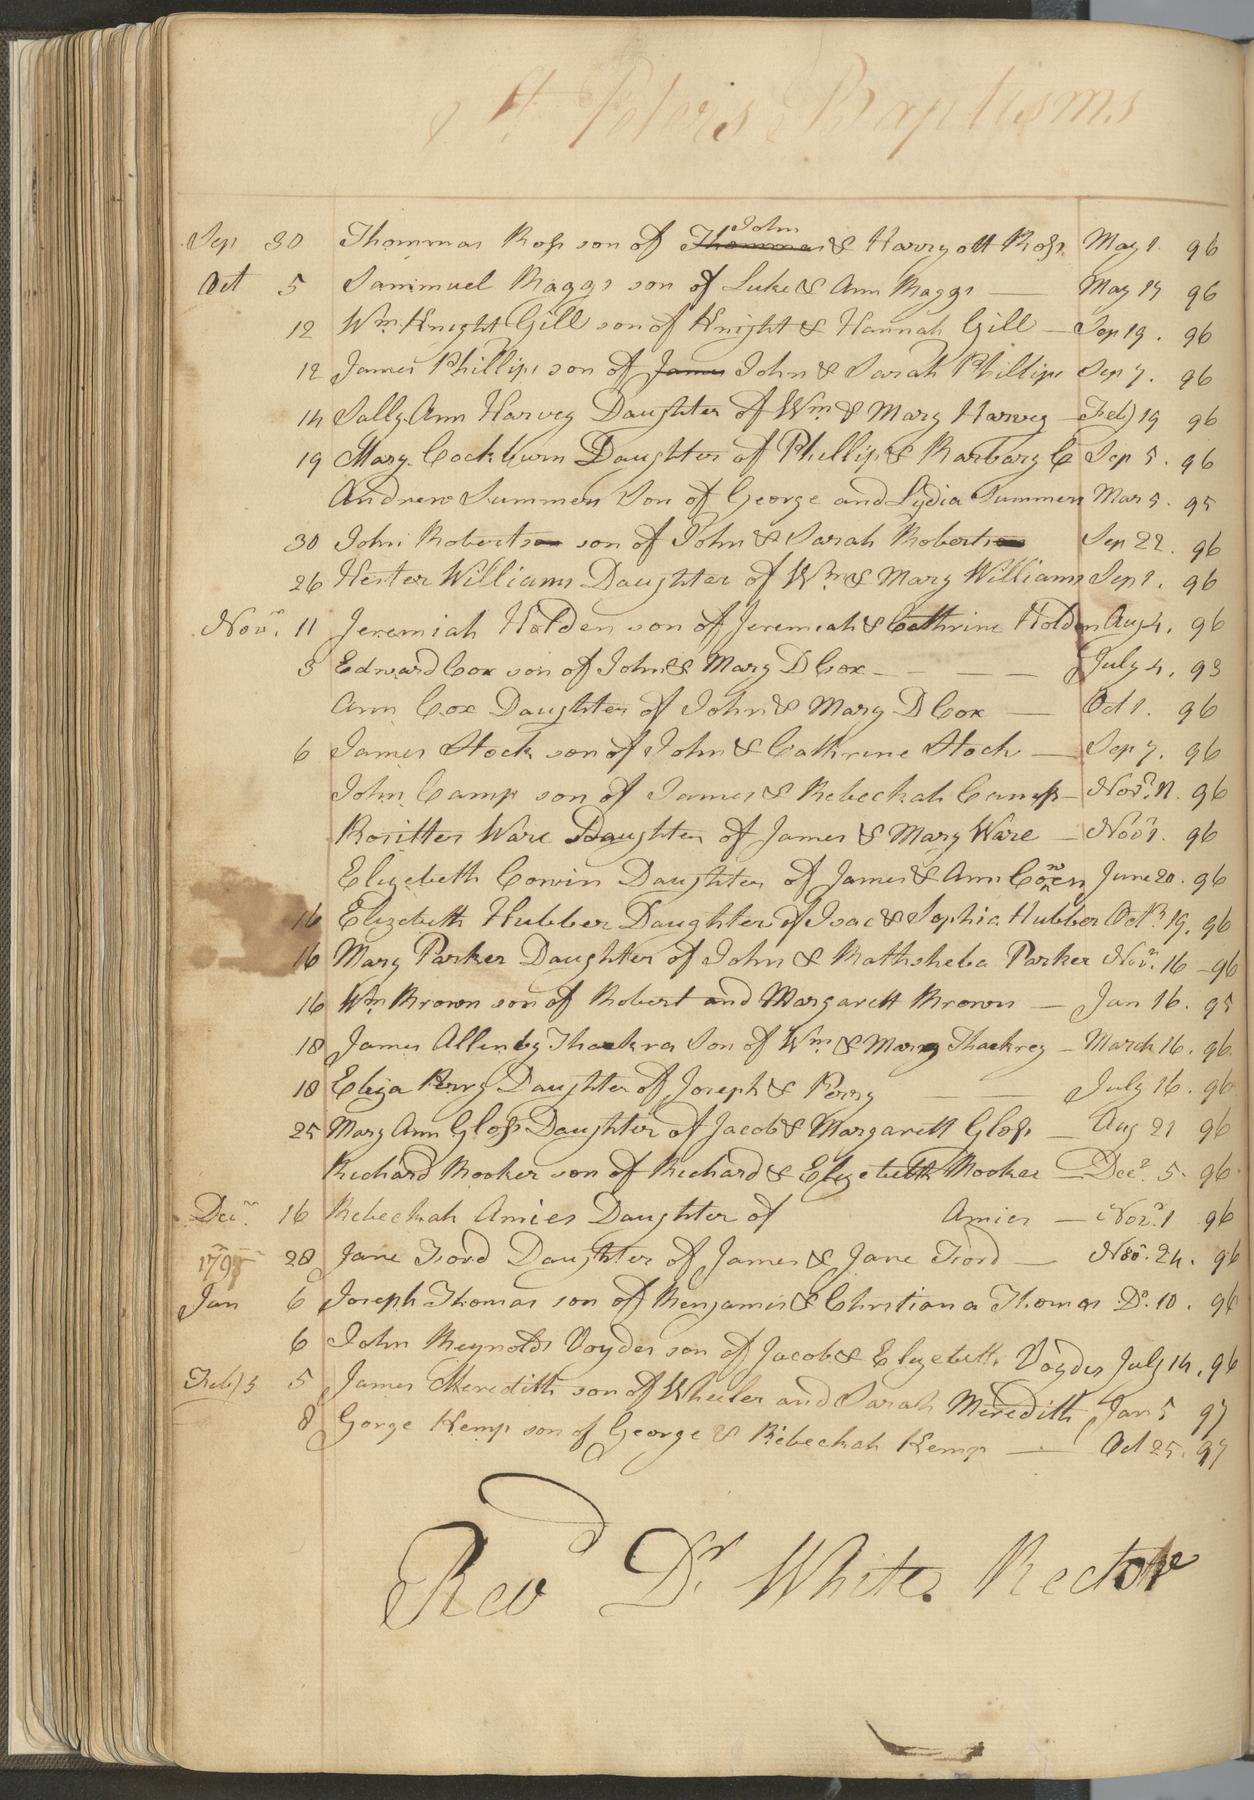 St Peter's Baptisms
Sep 30 Thommas Ross son of Thommas John & Harryott Ross May 1. 96
Oct 5 Sammuel Baggs son of Luke & Ann Baggs — May 14 96
12 Wm Knight Gill son of Knight & Hannah Gill — Sep 19. 96
12 James Phillips son of James John & Sarah Phillips Sep 7. 96
14 Sally Ann Harvey Daughter of Wm & Mary Harvey — Feby 19 96
19 Mary Cockburn Daughter of Phillip & Barbary C Sep 5. 96
Andrew Summers Son of George and Lydia Summers Mar 5. 95
30 John Roberts son of John & Sarah Roberts Sep 22. 96
26 Hester Williams Daughter of Wm & Mary Williams Sep 1. 96
Novr. 11 Jeremiah Holden son of Jeremiah & Cathrine Holden Aug 4. 96
3 Edward Cox son of John & Mary D Cox — — — — July 4. 93
Ann Cox Daughter of John & Mary D Cox — Oct 1. 96
6 James Stock son of John & Cathrine Stock — Sep 7. 96
John Camp son of James & Rebeckah Camp — Novr. 11. 96
Rositter Ware Daughter of James & Mary Ware — Novr 1. 96
Elizebeth Conwin Daughter of James & Ann June 20. 96
16 Elizebeth Hubber Daughter of Isac & Sophia Hubber Octr 19. 96
16 Mary Parker Daughter of John & Bathsheba Parker Novr. 16 - 96
16 Wm Brown son of Robert and Margarett Brown — Jan 16. 95
18 James Allenby Thackra Son of Wm & Mary Thackrey — March 16. 96
18 Eliza Perry Daughter of Joseph & Perry — — July 16. 96
25 Mary Ann Gloss Daughter of Jacob & Margarett Gloss — Aug 21 96
Richard Booker son of Richard & Elizebeth Booker — Decr. 5. 96
Decr. 16 Rebeckah Amies Daughter of Amies — Novr. 1 96
28 Jane Ford Daughter of James & Jane Ford — Novr. 24. 96
1797
Jan 6 Joseph Thomas son of Benjamin & Christiana Thomas Dr. 10. 96
6 John Reynolds Voyder son of Jacob & Elizebeth Voyder July 14. 96
Feby 5 5 James Meredith son of Wheeler and Sarah Meredith Jan 5 97
8 Gorge Kemp son of George & Rebeckah Kemp — Oct 25. 97
Revd Dr White Rector